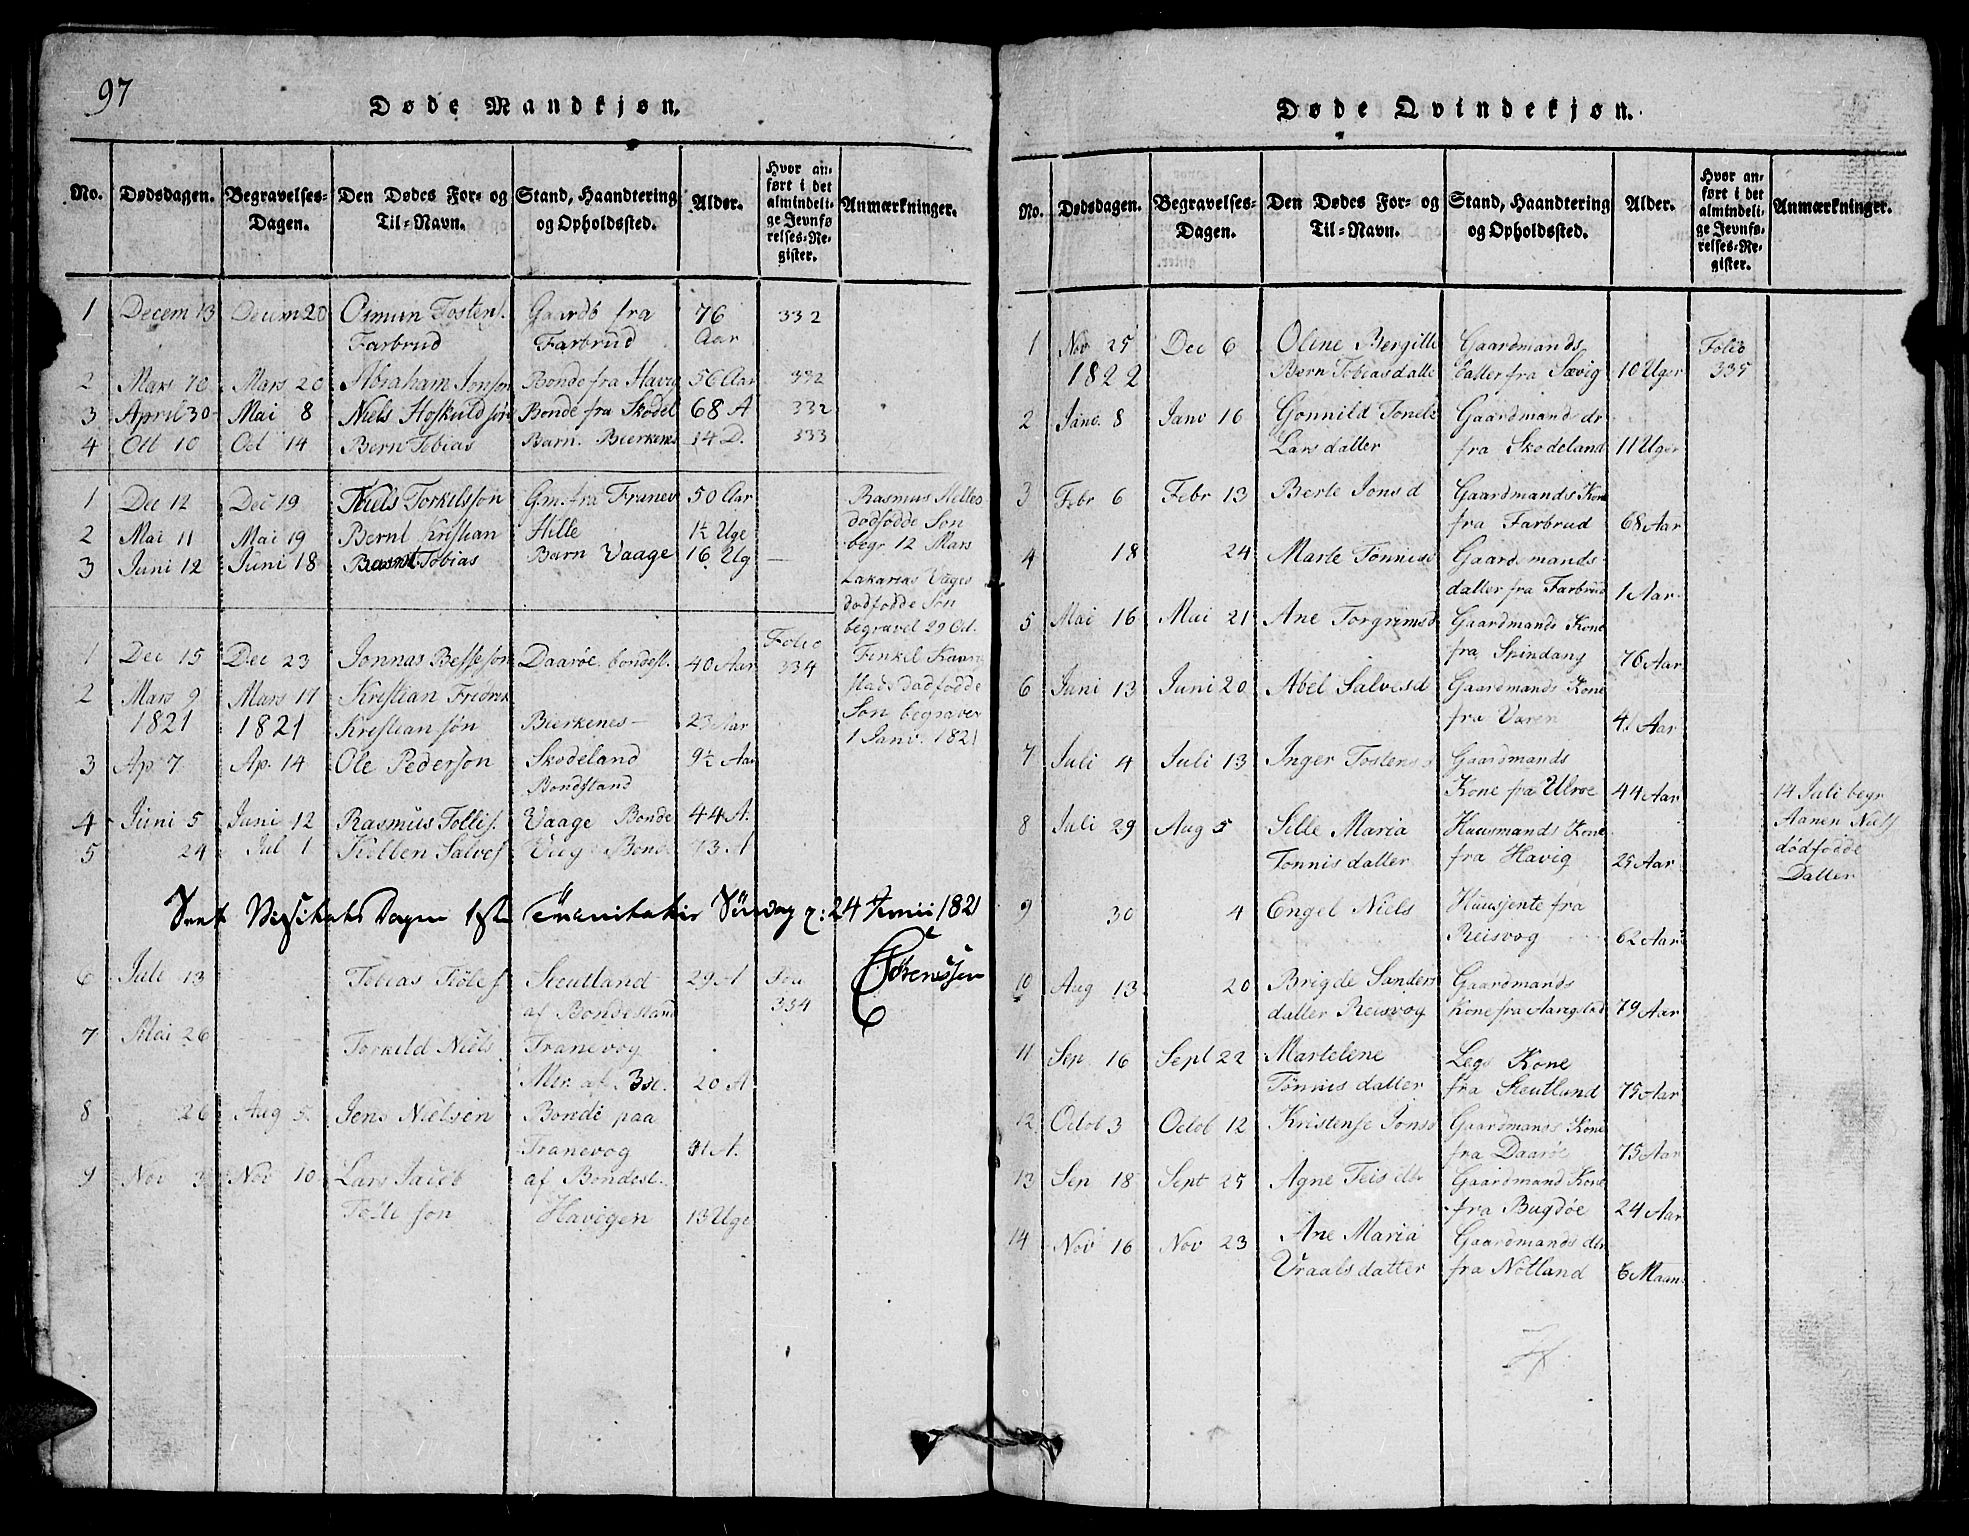 97
Døde Mandkjøn.
No. Dødsdagen. Begravelses-Dagen. Den Dødes For- og Til-Navn. Stand, Haandtering og Opholdssted. Alder. Hvor anført i det almindelige Jevnførelses-Register. Anmærkninger.
1 Decem 13 Decem 20 Osmun Tostens. Gaardb fra 76 332
Farbrud Farbrud Aar
2 Mars 10 Mars 20 Abraham Jonson Bonde fra Havig 56 Aar 332
3 April 30 Mai 8 Niels Hofkuldsøn Bonde fra Skodel 68 A 332
4 Oct 10 Oct 14 Bern Tobias Barn. Bierkenes 14 D. 333
1 Dec 12 Dec 19 Niels Torkilsson Gm. fra Franev 50 Aar Rasmus Hilles
dødfødde Søn
2 Mai 11 Mai 19 Bernt Kristian Hille 1½ Uge begr 12 Mars
3 Juni 12 Juni 18 Bernt Tobias Barn Vaage 16 Ug —
Zakarias Vages
dødfødde Søn
begravet 29 Oct.
Folio
1 Dec 15 Dec 23 Jonnas Besseson Daarøe bondest. 40 Aar 334 Tenkil Kaarig
2 Mars 9 Mars 17 Kristian Fridrik stads dødfødde
1821 1821 Kristiansøn Bierkenes- 23 Aar Søn begraven
1 Janv. 1821
3 Ap. 7 Ap. 14 Ole Pederson Skodeland 9½ Aar
Bondstand
4 Juni 5 Juni 12 Rasmus Tollis. Vaage Bonde 44 A.
5 24 Jul 1 Kolben Salves Vaag Bond 73 A
24 Junii 1821
Sørenssen
6 Juli 13 Tobias Tolless Steutland 29 A Fol
af Bondestand 334
7 Mai 26 Torkild Niels Tranevog
af Bst. 20 A
8 26 Aug 5. Jens Nielsen Bonde paa
Tranevog 91 A.
9 Nov 3 Nov 10 Lars Jacob af Bondest.
Tolleson Havigen 13 Uge
Døde Qvindekjøn.
No. Dødsdagen. Begravelses-Dagen. Den Dødes For- og Til-Navn. Stand, Haandtering og Opholdssted. Alder. Hvor anført i det almindelige Jevnførelses-Register. Anmærkninger.
1 Nov 25 Dec 6 Oline Bergitte Gaardmands Folio
1822 Bern Tobiasdatte datter fra Sævig 10 Uger 335
2 Janv. 8 Janv 16 Gonnild Tonele Gaardmand dr
Larsdatter fra Skodeland 11 Uger
3 Febr 6 Febr 13 Berte Jons d Gaardmands Kone
fra Farbrud 68 Aar
4 18 24 Marte Tonnisd Gaardsmands
datter fra Farbrud 1 Aar
5 Mai 16 Mai 21 Ane Torgrimsd Gaardmands Kone
fra Spindang 76 Aar
6 Juni 13 Juni 20 Abel Salvesd Gaardmands Kone
fra Varen 4. Aar
7 Juli 4 Juli 13 Inger Tostens d Gaardmands
Kone fra Ulvøe 44 Aar 14 Juli begr
8 Juli 29 Aug 5 Sille Maria Huusmands Kone Aanen Niels
Tonnisdatter fra Havig 25 Aar dødfødde
Datter
9 30 4 Engel Niels Huusjente fra
Reisvog 62 Aar
10 Aug 13 20 Brigde Sanders Gaardmands
datter Reisvog Kone fra Aaregstad 79 Aar
11 Sep 16 Sept 22 Martelene Legs Kone
Tønnis datter fra Steutland 75 Aar
12 Octob 3 Octob 12 Kristense Jonsd Gaardmands Kone
fra Daarøe 75 Aar
13 Sep 18 Sept 25 Agne Teis dtr Gaardmand Kone
fra Bugdøe 24 Aar
14 Nov 16 Nov 23 Ane Maria Gaardmands dtr
Vraals datter fra Notland 6 Maan